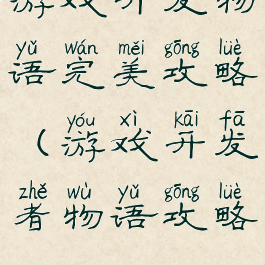 游戏开发物
yǔ wán měi gōng lüè
语完美攻略
yóu xì kāi fā
（游戏开发
zhě wù yǔ gōng lüè
者物语攻略